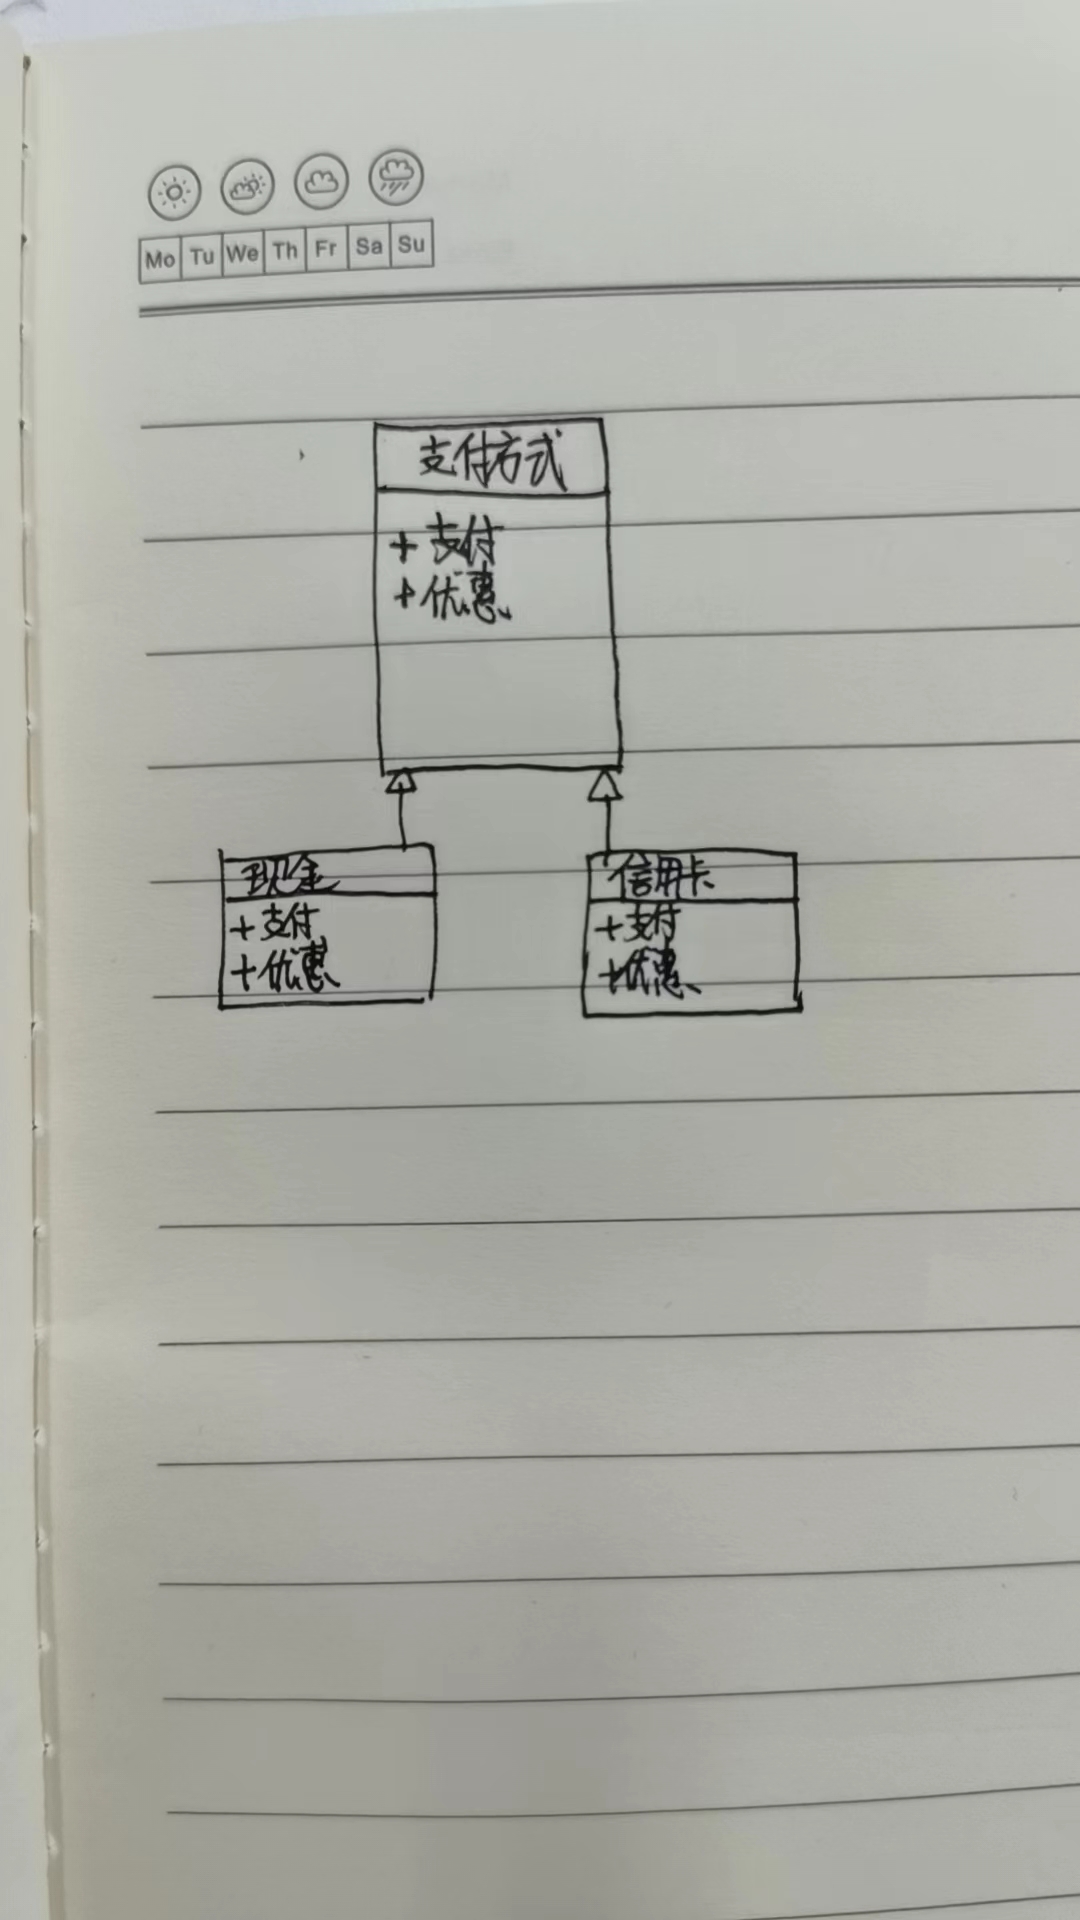 Mo Tu We Th Fr Sa Su
支付方式
+ 支付
+ 优惠
现金
+ 支付
+ 优惠
信用卡
+ 支付
+ 优惠